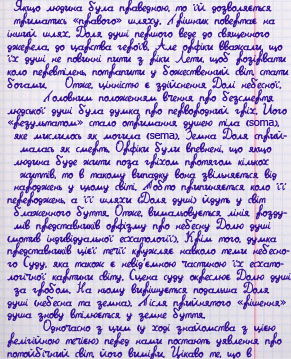 Якщо людина була праведною, то їй дозволяється
триматись «правого» шляху. Грішник повертає на
інший шлях. Доля душі першого веде до священного
джерела, до царства героїв. Але орфіки вважали, що
їх душі не повинні пити з ріки Лети, щоб розірвати
коло перевтілень, потрапити у божественний світ, стати
богами. Отже, цінністю є здійснення Долі небесної.
Головним положенням вчення про безсмертя
людської душі була думка про первородний гріх. Його
«результатом» стало отримання душею тіла (soma),
яке мислилось як могила (sema). Земна Доля сприй-
малась як смерть. Орфіки були впевнені, що якщо
людина буде жити поза гріхом протягом кількох
життів, то в такому випадку вона звільняється від
народжень у цьому світі. Тобто припиняється коло її
перероджень, а її шляхи (Доля душі) йдуть у світ
блаженного буття. Отже, вимальовується лінія розду-
мів представників орфізму про небесну Долю душі
(мотив індивідуальної есхатології). Крім того, думка
представників цієї течії кружляє навколо теми небесно-
го Суду, яка також є невід'ємною частиною їх есхато-
логічної картини світу. Сцена суду окреслює Долю душі
за гробом. На ньому вирішується подальша Доля
душі (небесна та земна). Після прийнятого «рішення»
душа знову втілюється у земне буття.
Одночасно з цим (у ході знайомства з цією
релігійною течією) перед нами постають уявлення про
потойбічний світ, його виміри. Цікаво те, що в